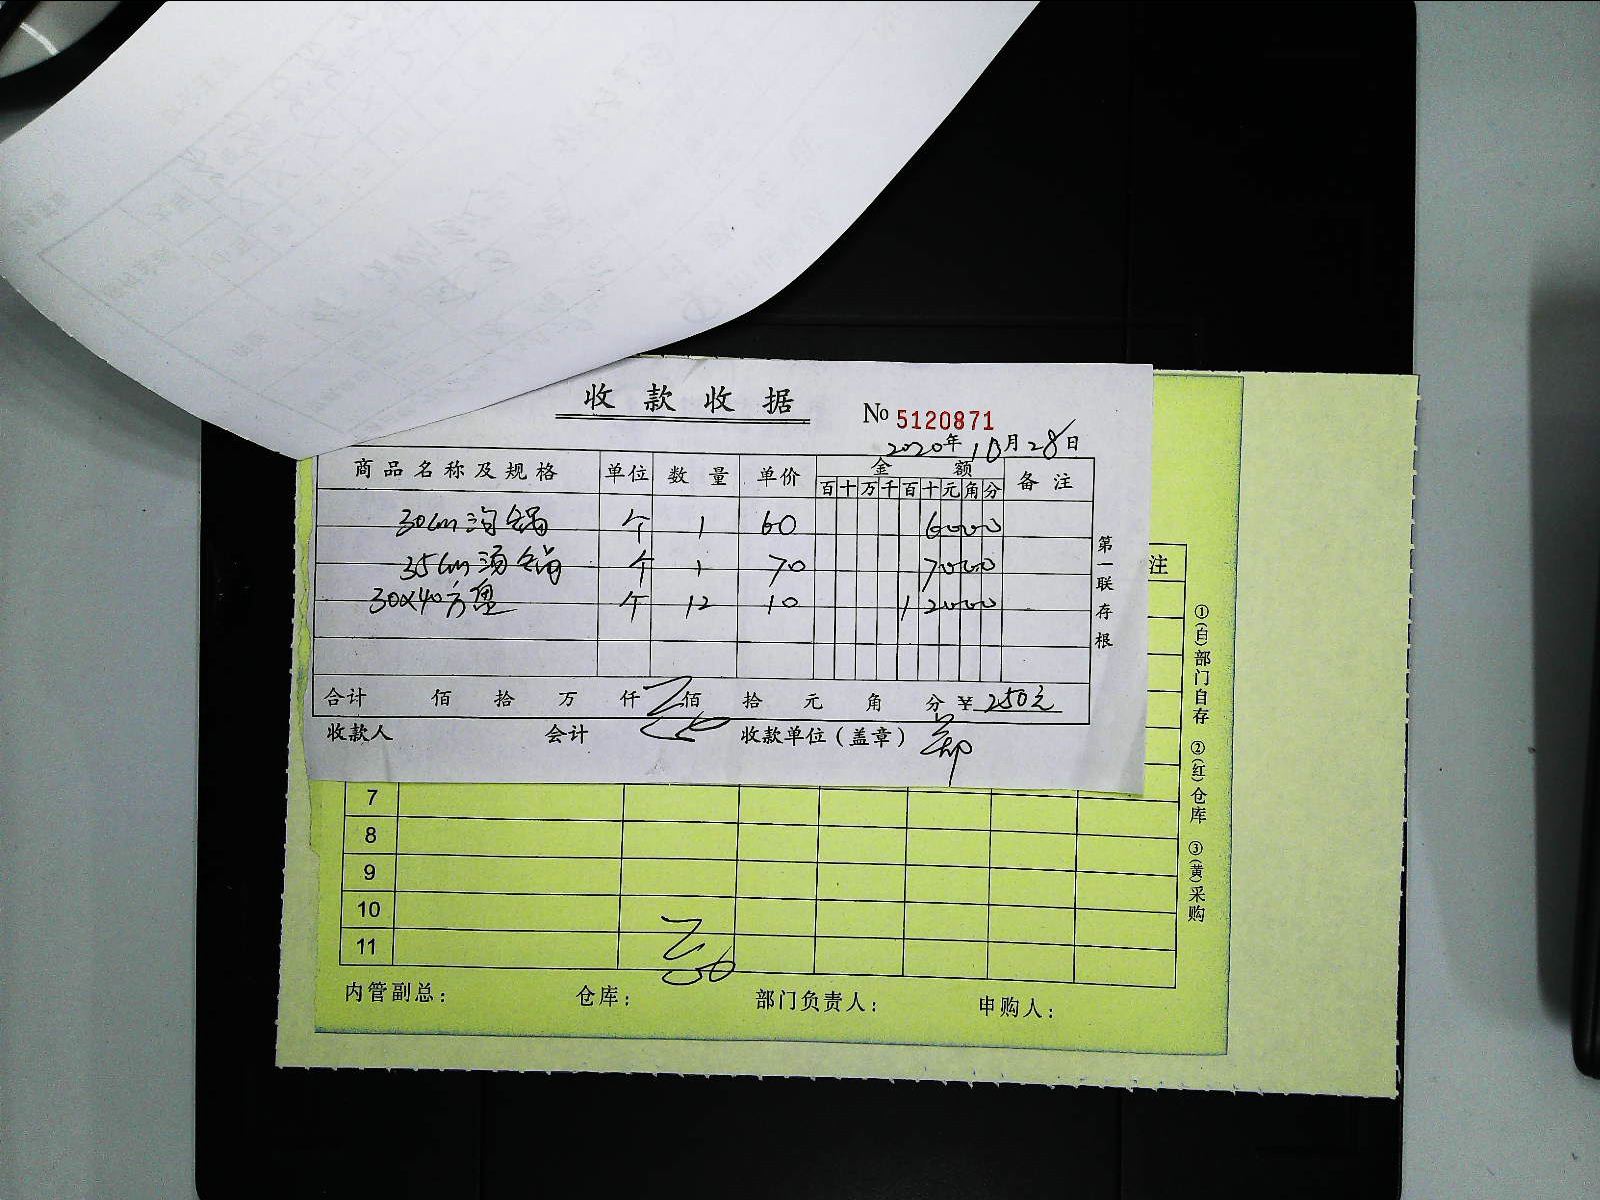 收款收据
No 5120871
2020年10月28日
商品名称及规格 单位 数量 单价 金额 备注
百 十 万 千 百 十 元 角 分
30cm 汤锅 个 1 60 6000
35cm 汤锅 个 1 70 7000
30×40方盘 个 12 10 12000
合计 佰 拾 万 仟 佰 拾 元 角 分 ¥ 250元
收款人 会计 收款单位(盖章)
第一联存根
注
7
8
9
10
11
内管副总: 仓库: 部门负责人: 申购人:
①(白)部门自存 ②(红)仓库 ③(黄)采购